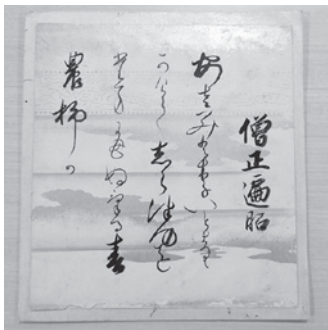 僧正遍昭
あさみどりいとより
かけてしらつゆを
たまにもぬける春
の柳か